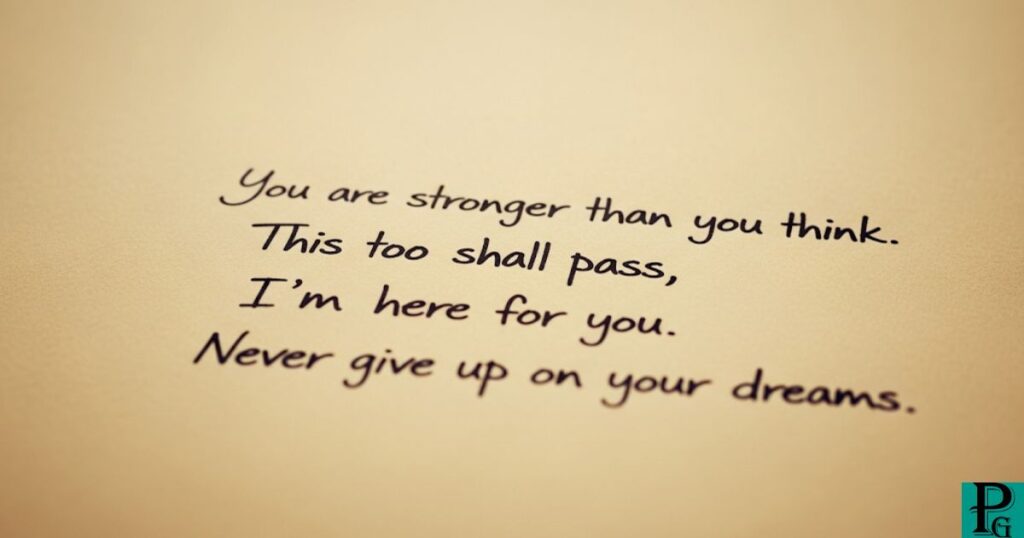 You are stronger than you think.
This too shall pass,
I'm here for you.
Never give up on your dreams.
PG